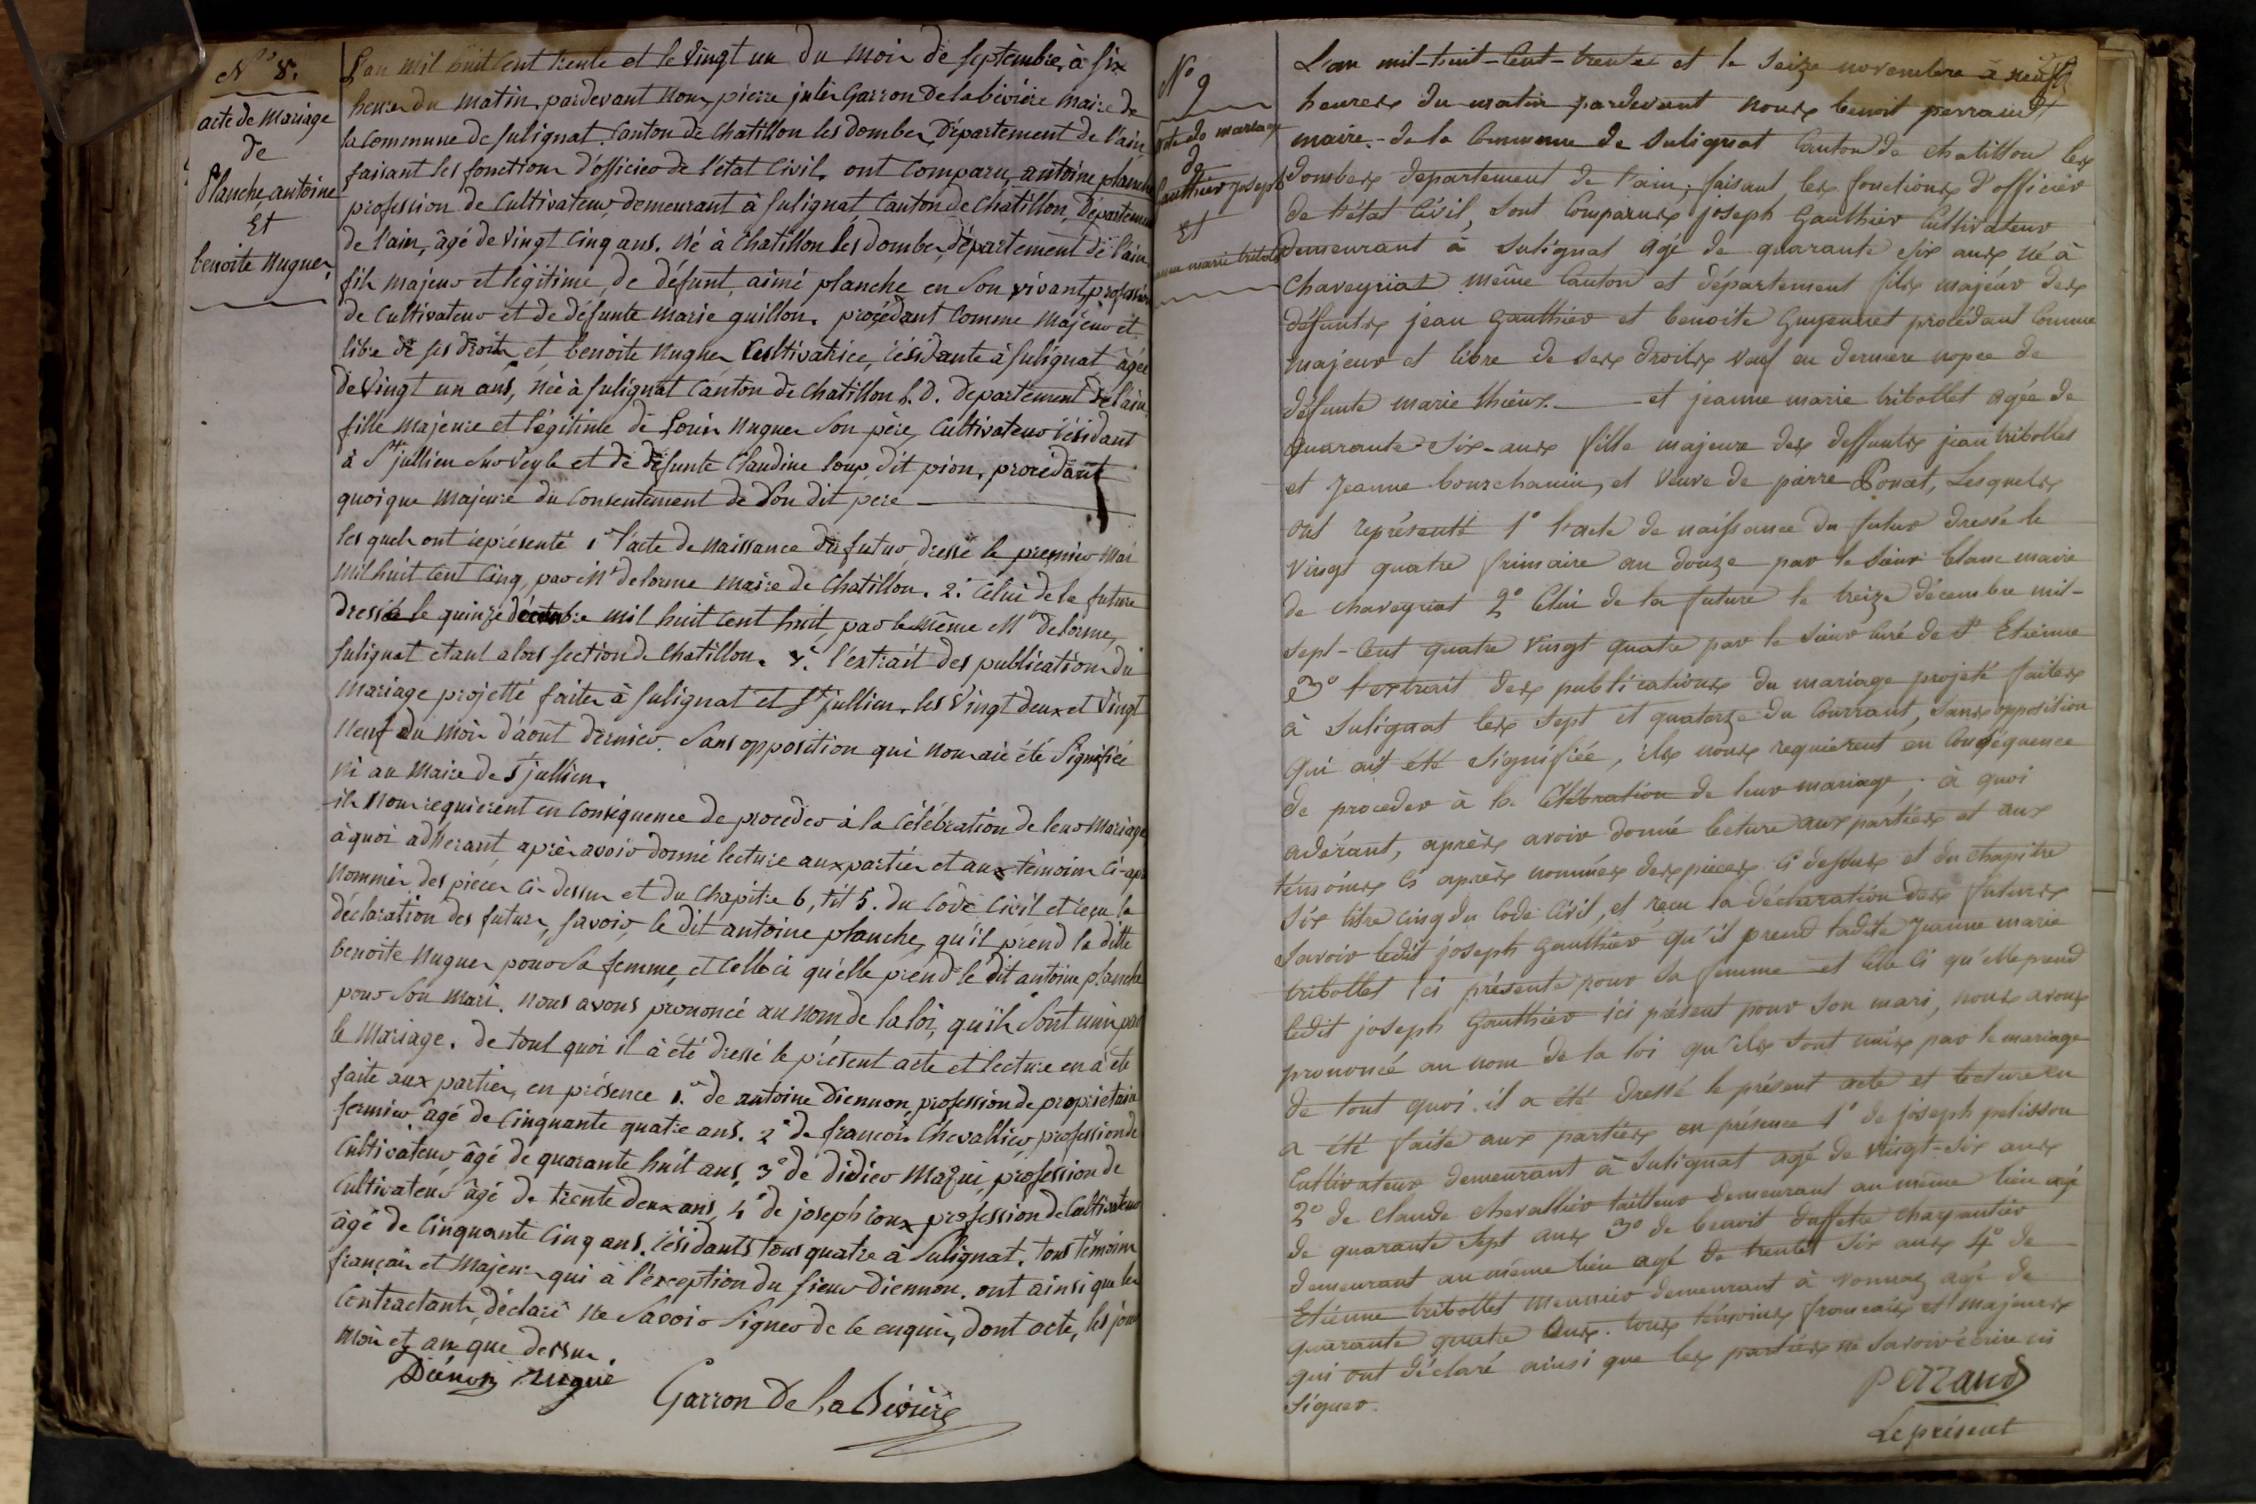 N° 8.
acte de Mariage
de
Planche, antoine
Et
benoite Nugues
L'an mil huit cent trente et le vingt un du mois de septembre, à six
heures du matin, pardevant Nous, pierre jules Garron De la bévière maire de
la Commune de Sulignat, Canton de Chatillon les dombes, Département de l'ain,
faisant les fonctions d'officier de l'état Civil, ont comparu, antoine planche
profession de Cultivateur, demeurant à Sulignat, Canton de Chatillon, Département
de l'ain, âgé de vingt cinq ans. Né à Chatillon les dombes, département de l'ain
fils majeur et légitime, de défunt, aimé planche en son vivant, profession
de Cultivateur et de défunte marie guillon. procédant comme majeur et
libre de ses droits, et benoite Nugues Cultivatrice, résidante à Sulignat, âgée
de vingt un ans, née à Sulignat Canton de Chatillon l. D. département de l'ain
fille majeure et légitime de Louis Nugues son père, Cultivateur résidant
à St jullien sur veyle et de défunte Claudine loup, dit pion, procédant
quoique majeure du Consentement de Son dit père
les quels ont représenté 1° l'acte de naissance du futur, dressé le premier mai
mil huit cent Cinq, par Mr delorme maire de Chatillon. 2° Celui de la future
dressé le quinze mil huit cent huit, par le même Mr delorme,
Sulignat etant alors section de Chatillon. l'extrait des publications du
Mariage projetté faites à Sulignat et St jullien, les Vingt deux et Vingt
Neuf du mois d'août dernier. Sans opposition qui nous aie été Signifiée
Ni au Maire de St jullien.
ils Nous requièrent en conséquence de procéder à la célébration de leur Mariage
à quoi adherant après avoir donné lecture aux parties et aux témoins Ci-apr
Nommés, des pièces Ci-dessus et du chapitre 6, tit 5. du Code Civil et reçu la
déclaration des futurs, savoir, le dit antoine planche, qu'il prend la ditte
benoite Nugues pour Sa femme, et celle ci qu'elle prend le dit antoine planche
pour Son mari. Nous avons prononcé au Nom de la loi, qu'ils sont unis par
le Mariage. de tout quoi il à été dressé le présent acte et lecture en à été
faite aux parties, en présence 1° de antoine Diennon, profession de propriétaire
fermier âgé de Cinquante quatre ans. 2° de françois Chevallier, profession de
Cultivateur âgé de quarante huit ans, 3° de didier Mazui, profession de
Cultivateur âgé de trente deux ans, 4° de joseph roux profession de Cultivateur
âgé de Cinquante Cinq ans. résidants tous quatre à Sulignat. tous témoins
françois et Majeurs qui à l'exception du Sieur Diennon. ont ainsi que les
Contractants, déclaré ne Savoir Signer de ce enquis, dont acte, les jour
mois et an que dessus.
Diénon
Garron De La Bévière
N° 9
de mariage
de
Gauthier joseph
Et
marie tribollet
L'an mil-huit-cent-trente et le seize novembre à neuf
heures du matin pardevant nous benoit perraud
maire de la Commune de Sulignat Canton de chatillon les
dombes département de l'ain, faisant les fonctions d'officier
de l'état Civil, sont Comparus joseph Gauthier Cultivateur
demeurant à Sulignat agé de quarante six ans né à
Chaveyriat même Canton et département fils majeur des
défunts jean Gauthier et benoite Guyennet procédant Comme
majeur et libre de ses droits veuf en derniere nopce de
défunte marie thieux. et jeanne marie tribollet agée de
quarante-six-ans fille majeure des deffunts jean tribollet
et jeanne bourchanin, et veuve de pierre Poncet, Lesquels
ont représenté 1° l'acte de naissance du futur dressé le
vingt quatre frimaire an douze par le Sieur blanc maire
de chaveyriat 2° Celui de la future le treize décembre mil-
sept-cent quatre vingt quatre par le Sieur curé de St Etienne
3° l'extrait des publications du mariage projeté faites
à Sulignat les sept et quatorze du Courrant, sans opposition
qui ait été Signifiée, ils nous requièrent en Conséquence
de proceder à la Célébration de leur mariage, à quoi
adérant, après avoir donné lecture aux parties et aux
témoins ci après nommés des pieces ci dessus et du chapitre
six titre cinq du Code Civil, et reçu la déclaration des futurs
savoir ledit joseph Gauthier qu'il prend ladite Jeanne marie
tribollet ici présente pour sa femme et Celle Ci qu'elle prend
ledit joseph Gauthier ici présent pour son mari, nous avons
prononcé au nom de la loi qu'ils sont unis par le mariage
de tout quoi il a été dressé le présent acte et lecture en
a été faite aux parties en présence 1° de joseph pelisson
Cultivateur demeurant à Sulignat agé de vingt-six ans
2° de claude chevallier tailleur demeurant au même lieu agé
de quarante sept ans 3° de benoit duffetre charpantier
demeurant au même lieu agé de trente six ans 4° de
Etienne tribollet meunier demeurant à vonnaz agé de
quarante quatre ans. tous témoins francais et majeurs
qui ont déclaré ainsi que les parties ne savoir écrire ni
signer.
Perraud
Le présent